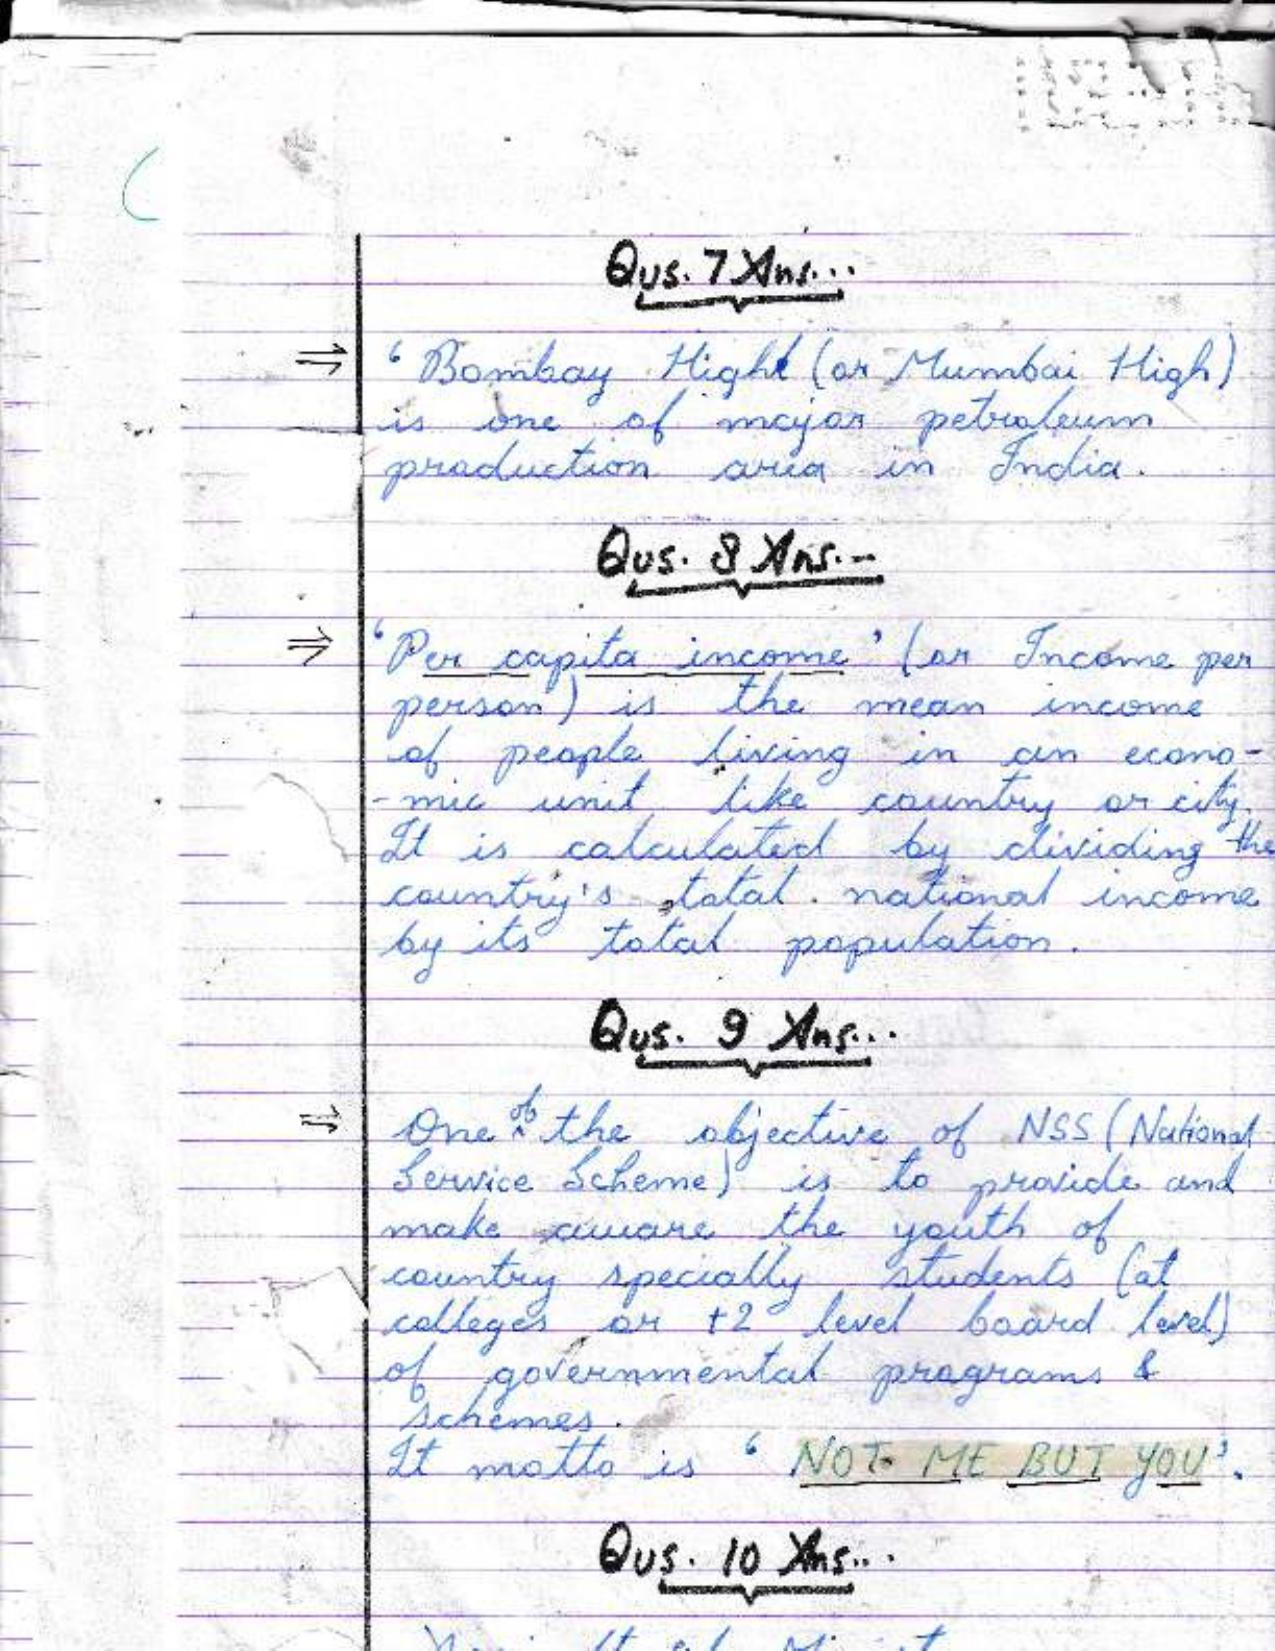 Qus. 7 Ans...
⇒ ' Bombay Hight (or Mumbai High)
is one of major petroleum
production area in India.
Qus. 8 Ans.-
⇒ 'Per capita income' (or Income per
person) is the mean income
of people living in an econo-
-mic unit like country or city.
It is calculated by dividing the
country's total national income
by its total population.
Qus. 9 Ans...
⇒ One of the objective of NSS (National
Service Scheme) is to provide and
make aware the youth of
country specially students (at
colleges or +2 level board level)
of governmental programs &
schemes.
It motto is ' NOT ME BUT YOU'.
Qus. 10 Ans...